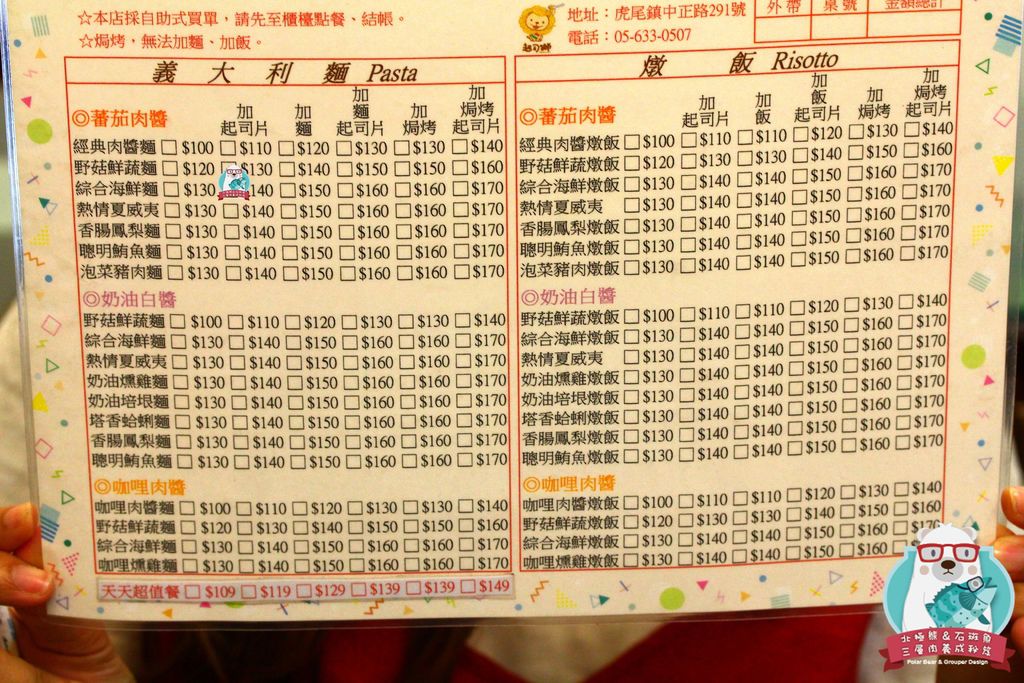 ☆本店採自助式買單，請先至櫃檯點餐、結帳。
☆焗烤，無法加麵、加飯。
起司獅
地址：虎尾鎮中正路291號
電話：05-633-0507
外帶 桌號 金額總計
義大利麵 Pasta
◎蕃茄肉醬 加起司片 加麵 加麵起司片 加焗烤 加焗烤起司片
經典肉醬麵 □ $100 □ $110 □ $120 □ $130 □ $130 □ $140
野菇鮮蔬麵 □ $120 □ $130 □ $140 □ $150 □ $150 □ $160
綜合海鮮麵 □ $130 $140 □ $150 □ $160 □ $160 □ $170
熱情夏威夷 □ $130 □ $140 □ $150 □ $160 □ $160 □ $170
香腸鳳梨麵 □ $130 □ $140 □ $150 □ $160 □ $160 □ $170
聰明鮪魚麵 □ $130 □ $140 □ $150 □ $160 □ $160 □ $170
泡菜豬肉麵 □ $130 □ $140 □ $150 □ $160 □ $160 □ $170
◎奶油白醬
野菇鮮蔬麵 □ $100 □ $110 □ $120 □ $130 □ $130 □ $140
綜合海鮮麵 □ $130 □ $140 □ $150 □ $160 □ $160 □ $170
熱情夏威夷 □ $130 □ $140 □ $150 □ $160 □ $160 □ $170
奶油燻雞麵 □ $130 □ $140 □ $150 □ $160 □ $160 □ $170
奶油培垠麵 □ $130 □ $140 □ $150 □ $160 □ $160 □ $170
塔香蛤蜊麵 □ $130 □ $140 □ $150 □ $160 □ $160 □ $170
香腸鳳梨麵 □ $130 □ $140 □ $150 □ $160 □ $160 □ $170
聰明鮪魚麵 □ $130 □ $140 □ $150 □ $160 □ $160 □ $170
◎咖哩肉醬
咖哩肉醬麵 □ $100 □ $110 □ $120 □ $130 □ $130 □ $140
野菇鮮蔬麵 □ $120 □ $130 □ $140 □ $150 □ $150 □ $160
綜合海鮮麵 □ $130 □ $140 □ $150 □ $160 □ $160 □ $170
咖哩燻雞麵 □ $130 □ $140 □ $150 □ $160 □ $160 □ $170
天天超值餐 □ $109 □ $119 □ $129 □ $139 □ $139 □ $149
燉飯 Risotto
◎蕃茄肉醬 加起司片 加飯 加飯起司片 加焗烤 加焗烤起司片
經典肉醬燉飯 □ $100 □ $110 □ $110 □ $120 □ $130 □ $140
野菇鮮蔬燉飯 □ $120 □ $130 □ $130 □ $140 □ $150 □ $160
綜合海鮮燉飯 □ $130 □ $140 □ $140 □ $150 □ $160 □ $170
熱情夏威夷 □ $130 □ $140 □ $140 □ $150 □ $160 □ $170
香腸鳳梨燉飯 □ $130 □ $140 □ $140 □ $150 □ $160 □ $170
聰明鮪魚燉飯 □ $130 □ $140 □ $140 □ $150 □ $160 □ $170
泡菜豬肉燉飯 □ $130 □ $140 □ $140 □ $150 □ $160 □ $170
◎奶油白醬
野菇鮮蔬燉飯 □ $100 □ $110 □ $110 □ $120 □ $130 □ $140
綜合海鮮燉飯 □ $130 □ $140 □ $140 □ $150 □ $160 □ $170
熱情夏威夷 □ $130 □ $140 □ $140 □ $150 □ $160 □ $170
奶油燻雞燉飯 □ $130 □ $140 □ $140 □ $150 □ $160 □ $170
奶油培垠燉飯 □ $130 □ $140 □ $140 □ $150 □ $160 □ $170
塔香蛤蜊燉飯 □ $130 □ $140 □ $140 □ $150 □ $160 □ $170
香腸鳳梨燉飯 □ $130 □ $140 □ $140 □ $150 □ $160 □ $170
聰明鮪魚燉飯 □ $130 □ $140 □ $140 □ $150 □ $160 □ $170
◎咖哩肉醬
咖哩肉醬燉飯 □ $100 □ $110 □ $110 □ $120 □ $130 □ $140
野菇鮮蔬燉飯 □ $120 □ $130 □ $130 □ $140 □ $150 □ $160
綜合海鮮燉飯 □ $130 □ $140 □ $140 □ $150 □ $160 □ $170
咖哩燻雞燉飯 □ $130 □ $140 □ $140 □ $150 □ $160
北極熊&石斑魚
三層肉養成秘笈
Polar Bear & Grouper Design